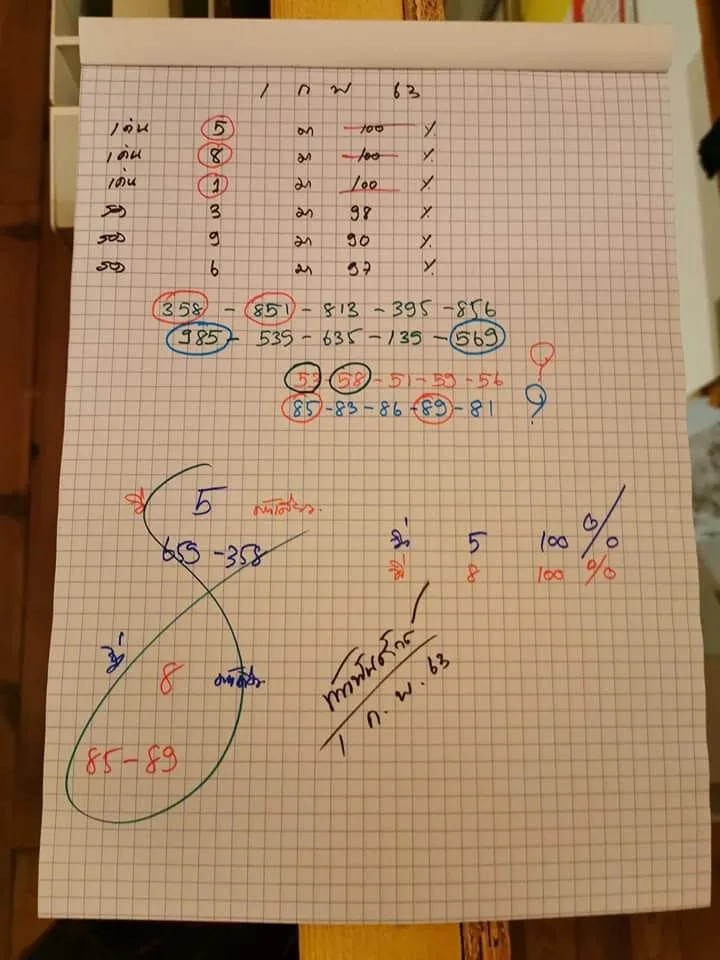 1 ก พ 63
เด่น 5 มา 100 %
เด่น 8 มา 100 %
เด่น 1 มา 100 %
รอง 3 มา 98 %
รอง 9 มา 90 %
รอง 6 มา 97 %
358 - 851 - 813 - 395 - 856
985 - 539 - 635 - 139 - 569
53 - 58 - 51 - 59 - 56
85 - 83 - 86 - 89 - 81
5
659 - 358
5 100 %
8 100 %
8
85 - 89
1 ก. พ. 63